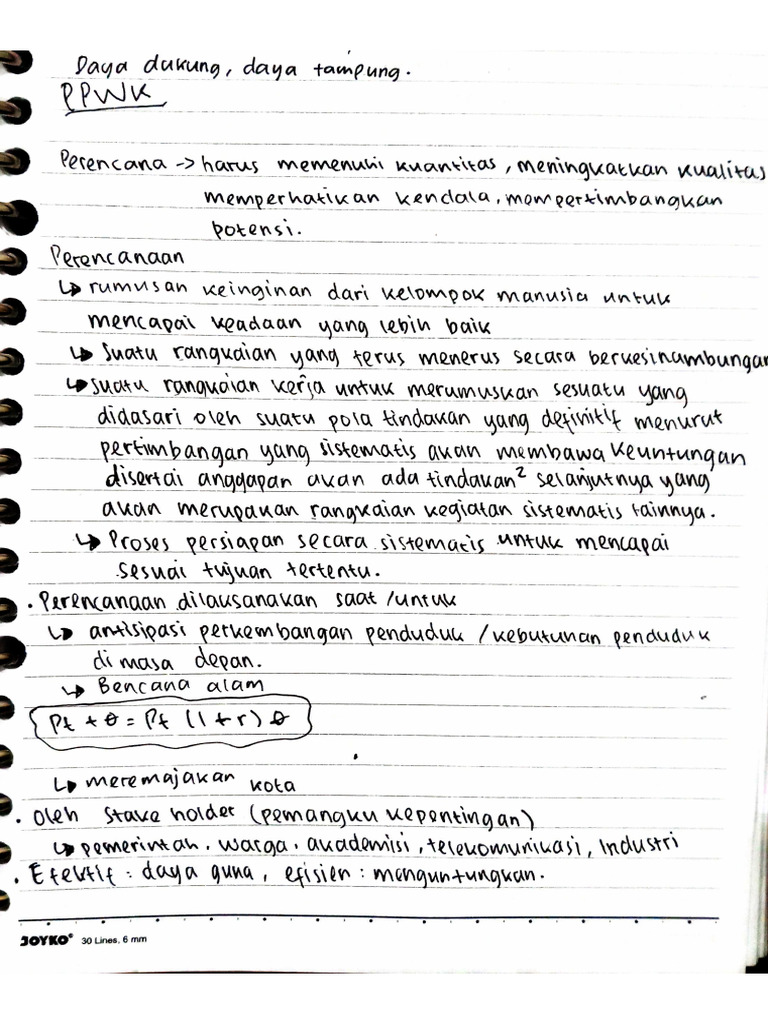 Daya dukung, daya tampung.
PPWK
Perencana -> harus memenuhi kuantitas, meningkatkan kualitas
memperhatikan kendala, mempertimbangkan
potensi.
Perencanaan
↳ rumusan keinginan dari kelompok manusia untuk
mencapai keadaan yang lebih baik
↳ Suatu rangkaian yang terus menerus secara berkesinambungan
↳ suatu rangkaian kerja untuk merumuskan sesuatu yang
didasari oleh suatu pola tindakan yang definitif menurut
pertimbangan yang sistematis akan membawa keuntungan
disertai anggapan akan ada tindakan² selanjutnya yang
akan merupakan rangkaian kegiatan sistematis lainnya.
↳ Proses persiapan secara sistematis untuk mencapai
sesuai tujuan tertentu.
• Perencanaan dilaksanakan saat /untuk
↳ antisipasi perkembangan penduduk /kebutuhan penduduk
di masa depan.
↳ Bencana alam
Pt + θ = Pt (1 + r) θ
↳ meremajakan kota
• Oleh stake holder (pemangku kepentingan)
↳ pemerintah, warga, akademisi, telekomunikasi, Industri
• Efektif : daya guna, efisien : menguntungkan.
JOYKO® 30 Lines, 6 mm